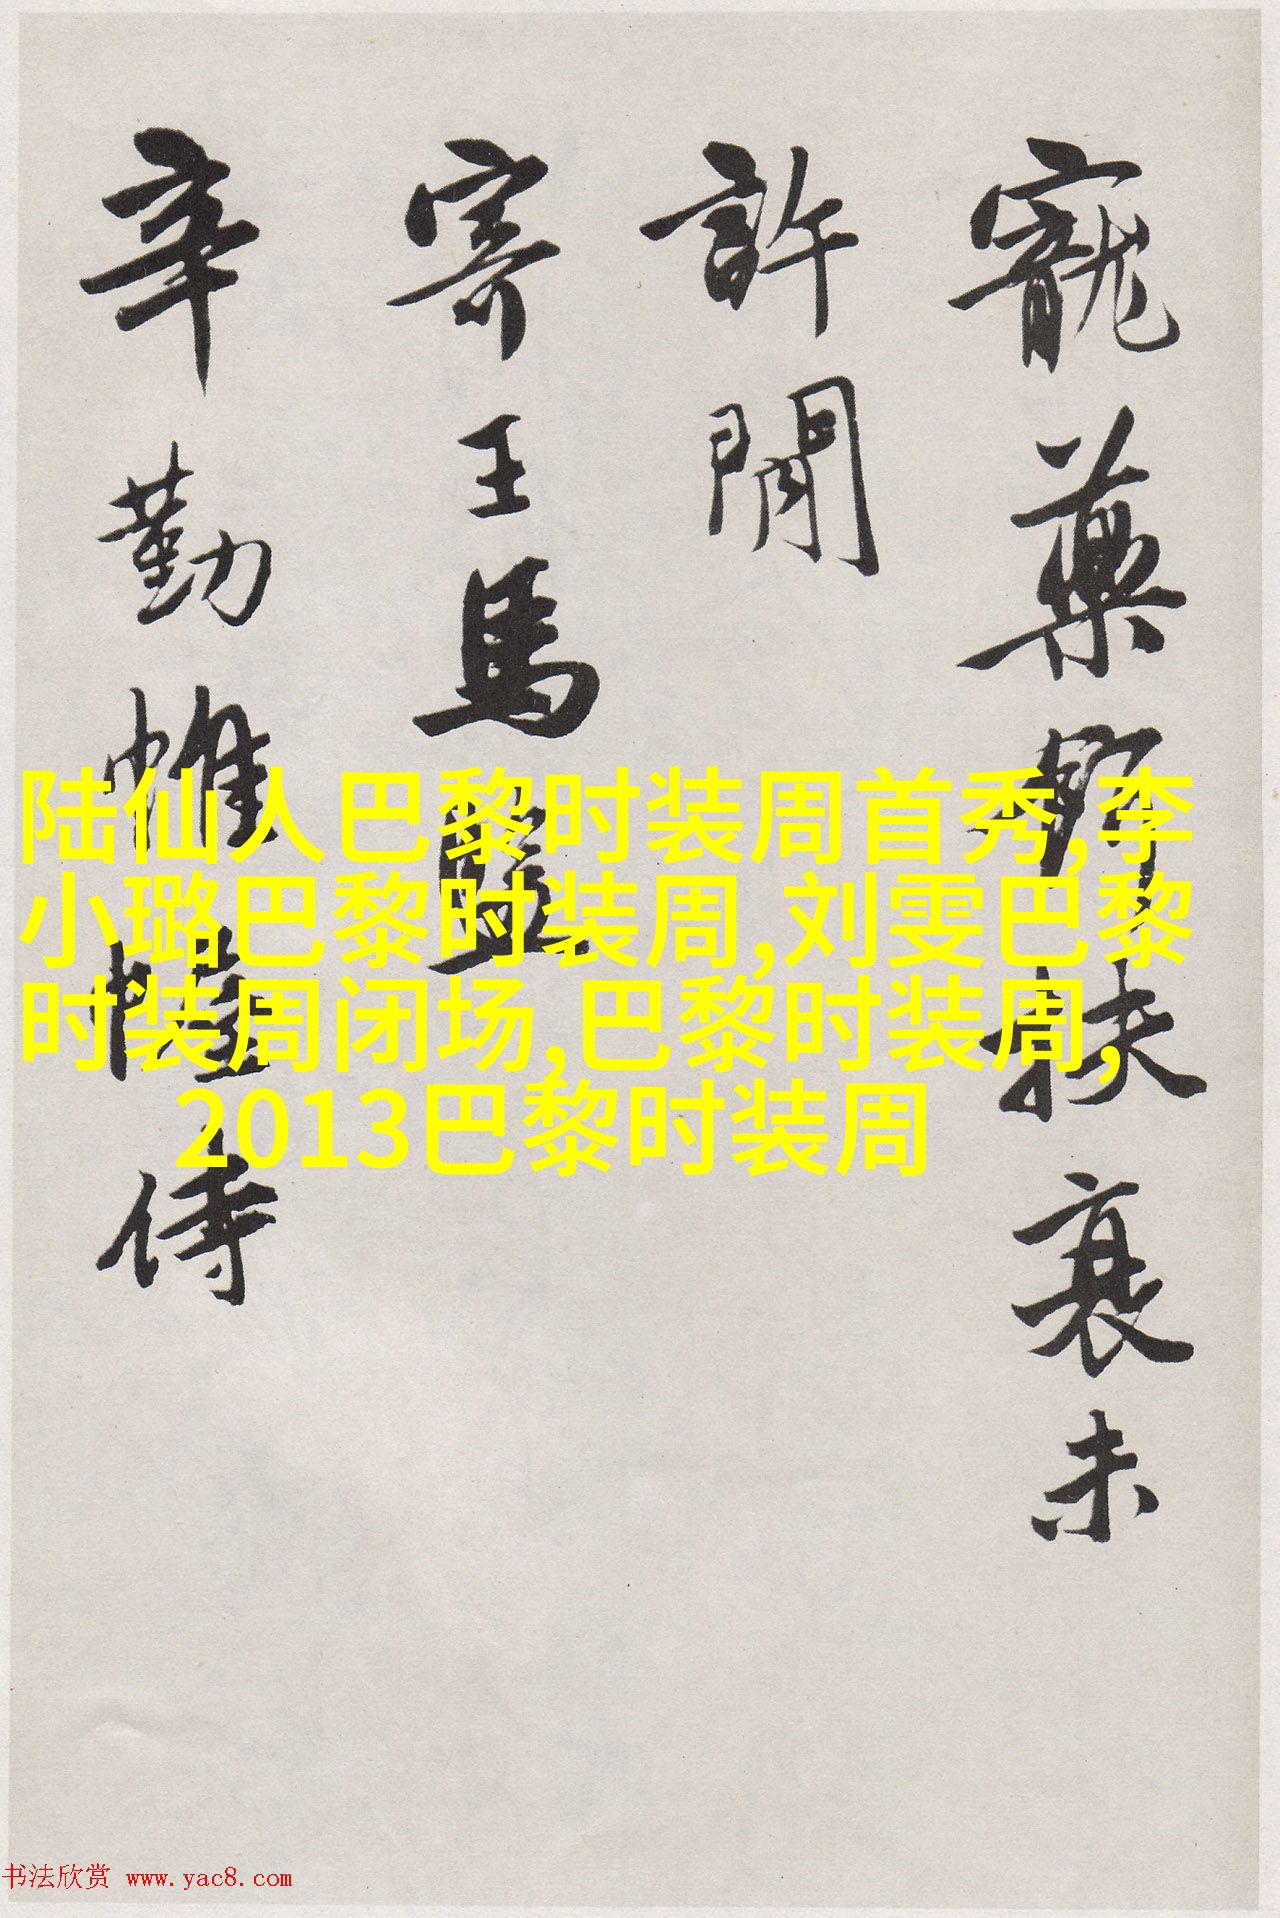 寵藥時扶衰未
許閒
寄王馬監
辛勤帷幄侍
陆仙人巴黎时装周首秀,李
小璐巴黎时装周,刘雯巴黎
时装周闭场,巴黎时装周,
2013巴黎时装周
书法欣赏 www.yac8.com